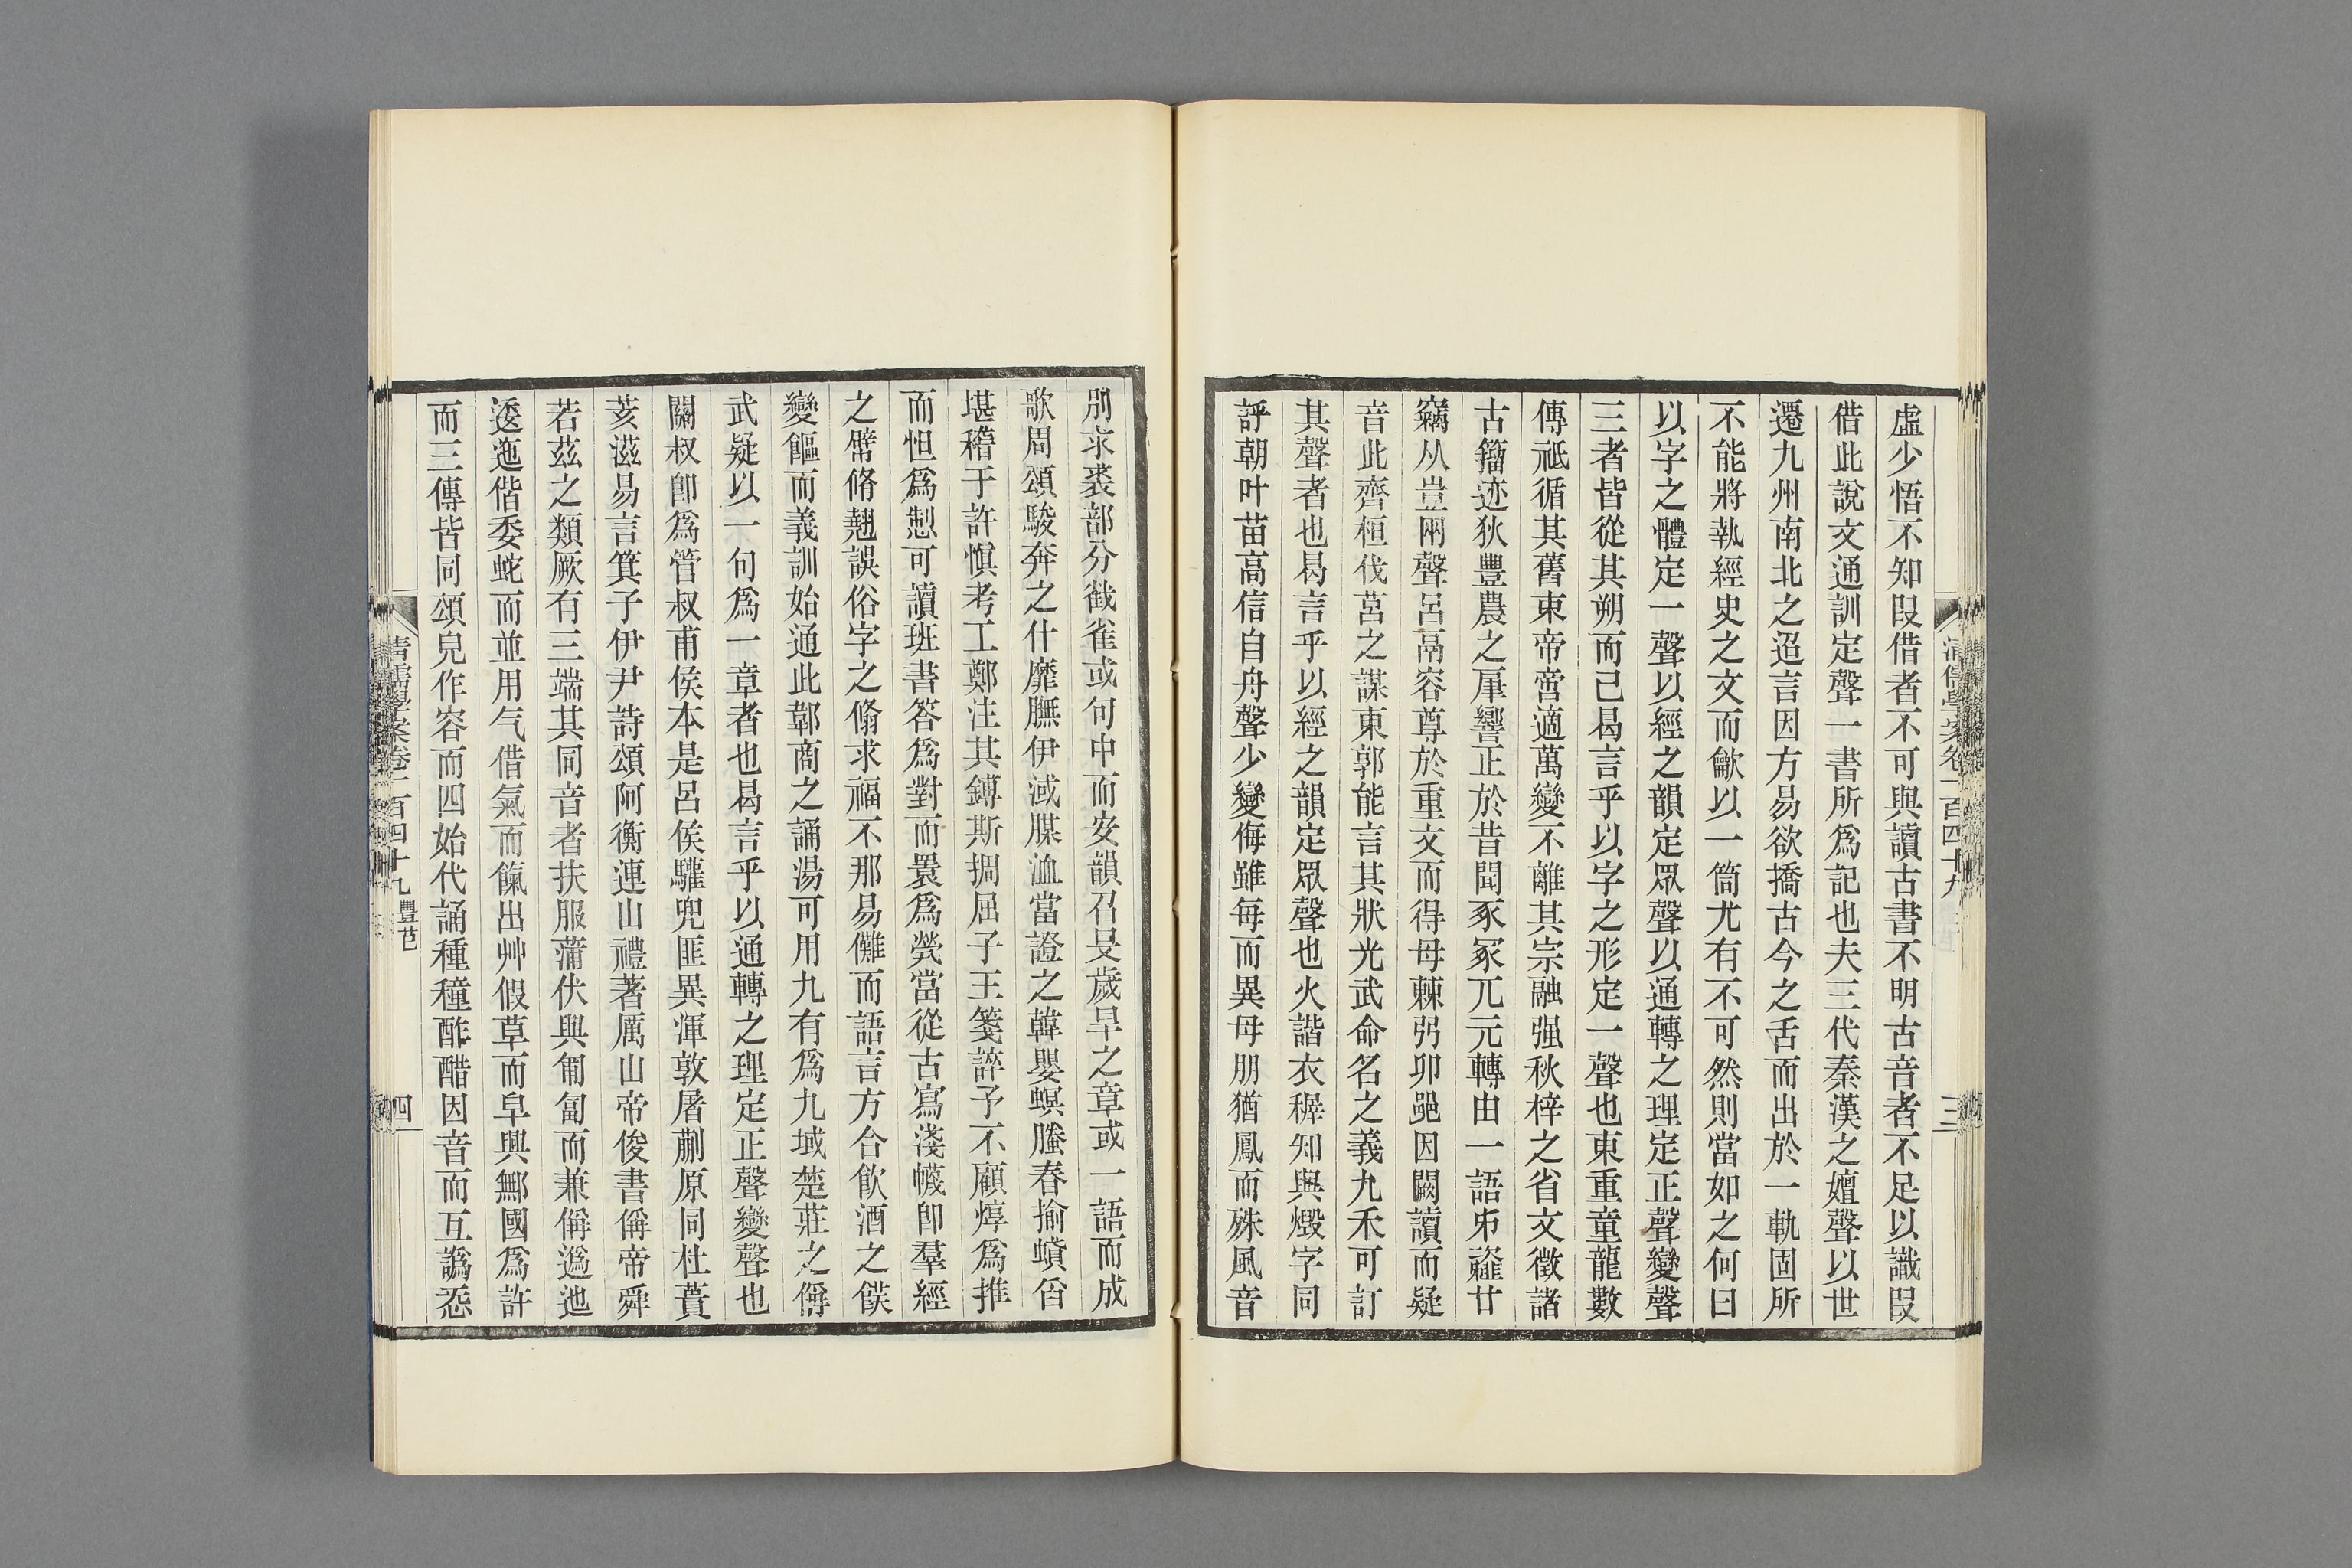 清儒學案卷一百四十九
三
虛少悟不知叚借者不可與讀古書不明古音者不足以識叚
借此說文通訓定聲一書所爲記也夫三代秦漢之嬗聲以世
遷九州南北之迢言因方易欲撟古今之舌而出於一軌固所
不能將執經史之文而龡以一筩尤有不可然則當如之何曰
以字之體定一聲以經之韻定眾聲以通轉之理定正聲變聲
三者皆從其朔而已曷言乎以字之形定一聲也東重童龍數
傳祇循其舊朿帝啻適萬變不離其宗融强秋梓之省文徵諸
古籀迹狄豐農之厓響正於昔聞豕冢兀元轉由一語𠂔𧗕廿
竊从豈兩聲呂鬲容尊於重文而得母㯥弜卯𨙨因闕讀而疑
音此齊桓伐莒之謀東郭能言其狀光武命名之義九禾可訂
其聲者也曷言乎以經之韻定眾聲也火諧衣稺知與燬字同
評朝叶苗高信自舟聲少變侮雖每而異母朋猶鳳而殊風音
別求裘部分截雀或句中而安韻召旻歲旱之章或一語而成
歌周頌駿奔之什靡膴伊減腜洫當證之韓嬰螟螣春揄蟘舀
堪稽于許愼考工鄭注其鎛斯搊屈子王箋誶予不顧焞爲推
而怛爲𢠵可讀班書答爲對而睘爲煢當從古寫淺幭卽羣經
之幦脩翹誤俗字之翛求福不那易儺而語言方合飮酒之餥
變饇而義訓始通此鄣商之誦湯可用九有爲九域楚莊之僢
武疑以一句爲一章者也曷言乎以通轉之理定正聲變聲也
關叔卽爲管叔甫侯本是呂侯驩兜匪異渾敦屠蒯原同杜蕢
荄滋易言箕子伊尹詩頌阿衡連山禮著厲山帝俊書偁帝舜
若茲之類厥有三端其同音者扶服蒲伏與匍匐而兼偁逶迆
逶迤偕委蛇而並用气借氣而餼出艸假草而皁興鄦國爲許
而三傳皆同頌皃作容而四始代誦種穜酢醋因音而互譌㤅
清儒學案卷一百四十九 豐芑
四